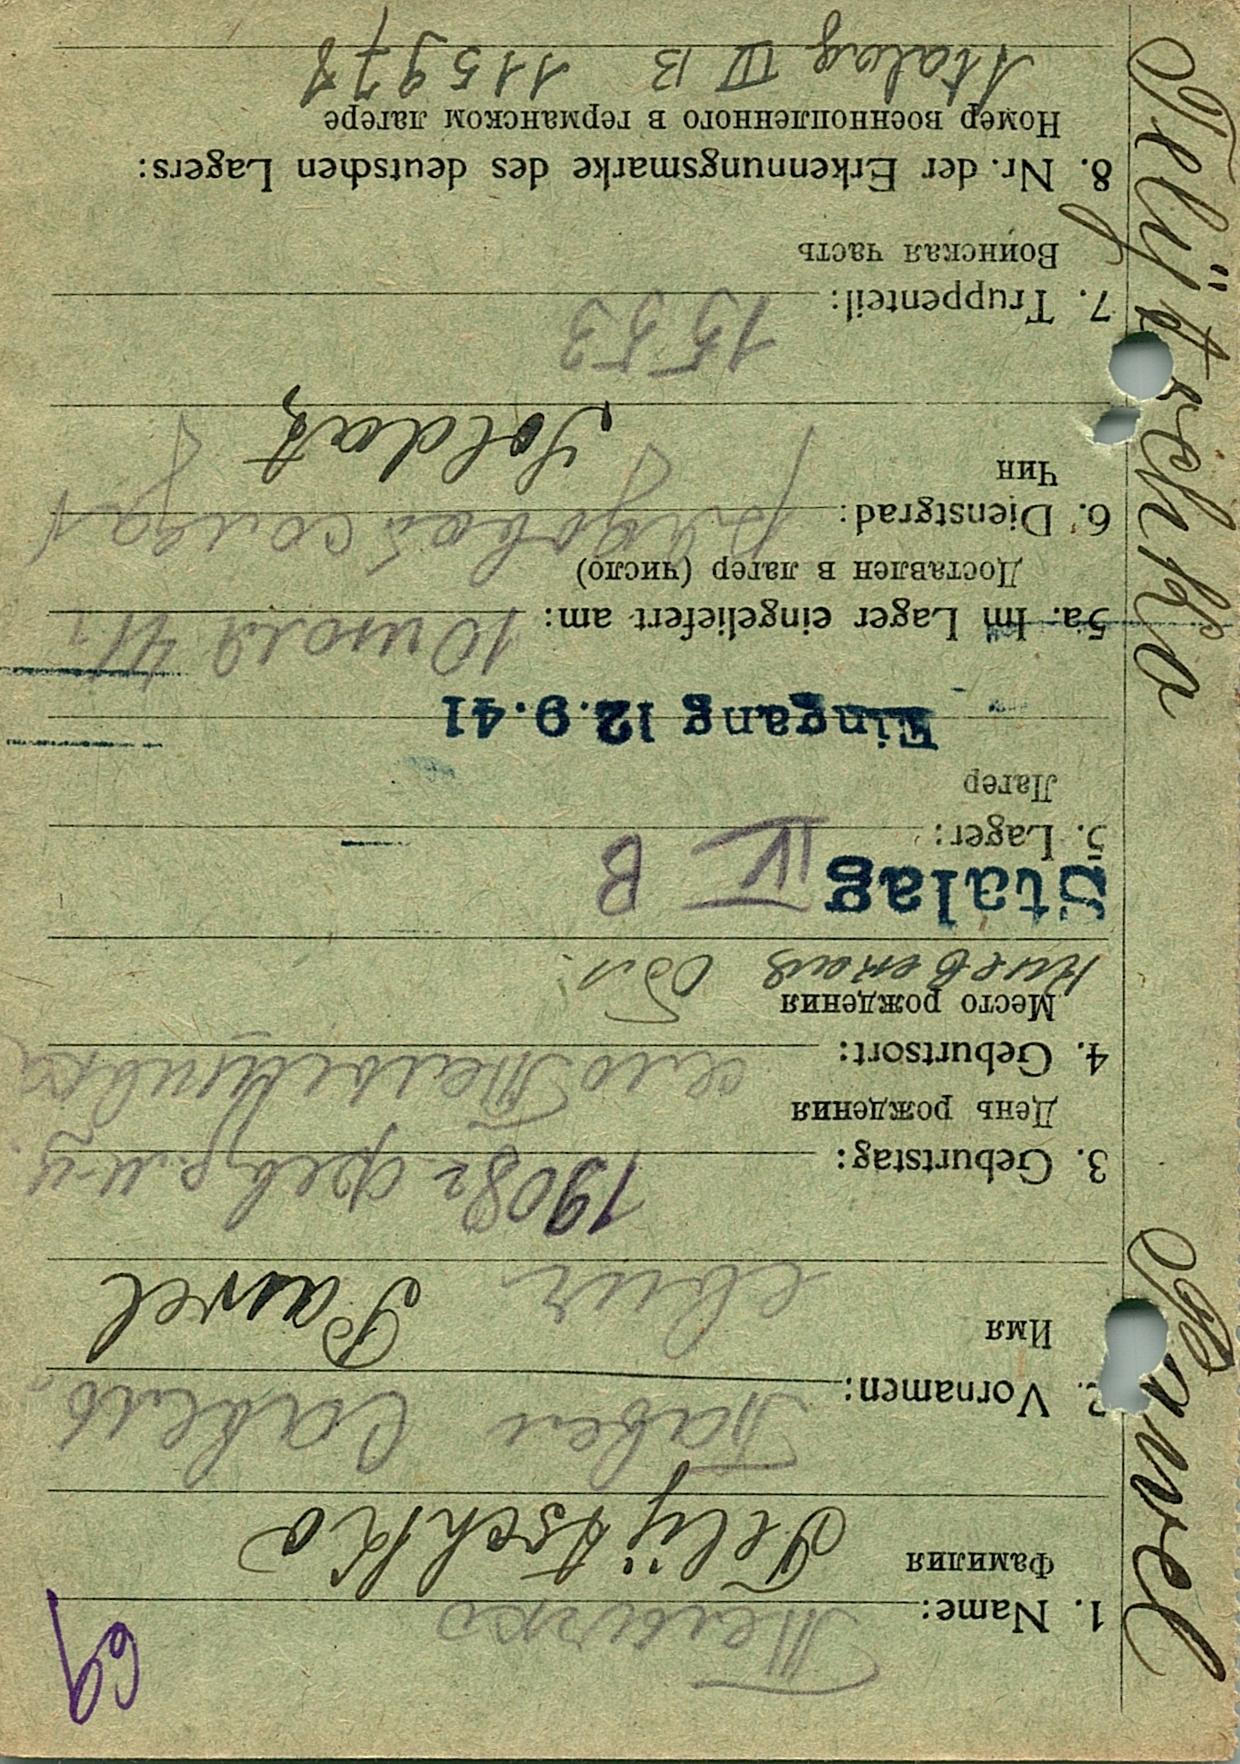 69
Теличко
1. Name:
Фамилия
Telÿtschko
Павел Савель,
2. Vornamen:
Имя
евич Pawel
3. Geburtstag: 1908 г февр.
День рождения
4. Geburtsort: село
Место рождения
Киевская обл.
Stalag IV B
5. Lager:
Лагер
Eingang 12.9.41
5a. Im Lager eingeliefert am: 10 июля 41 г
Доставлен в лагер (число)
6. Dienstgrad: рядовой солдат
Чин
Soldat
1553
7. Truppenteil:
Воинская часть
8. Nr. der Erkennungsmarke des deutschen Lagers:
Номер военнопленного в германском лагере
Stalag IV B 115978
Telÿtschko Pawel